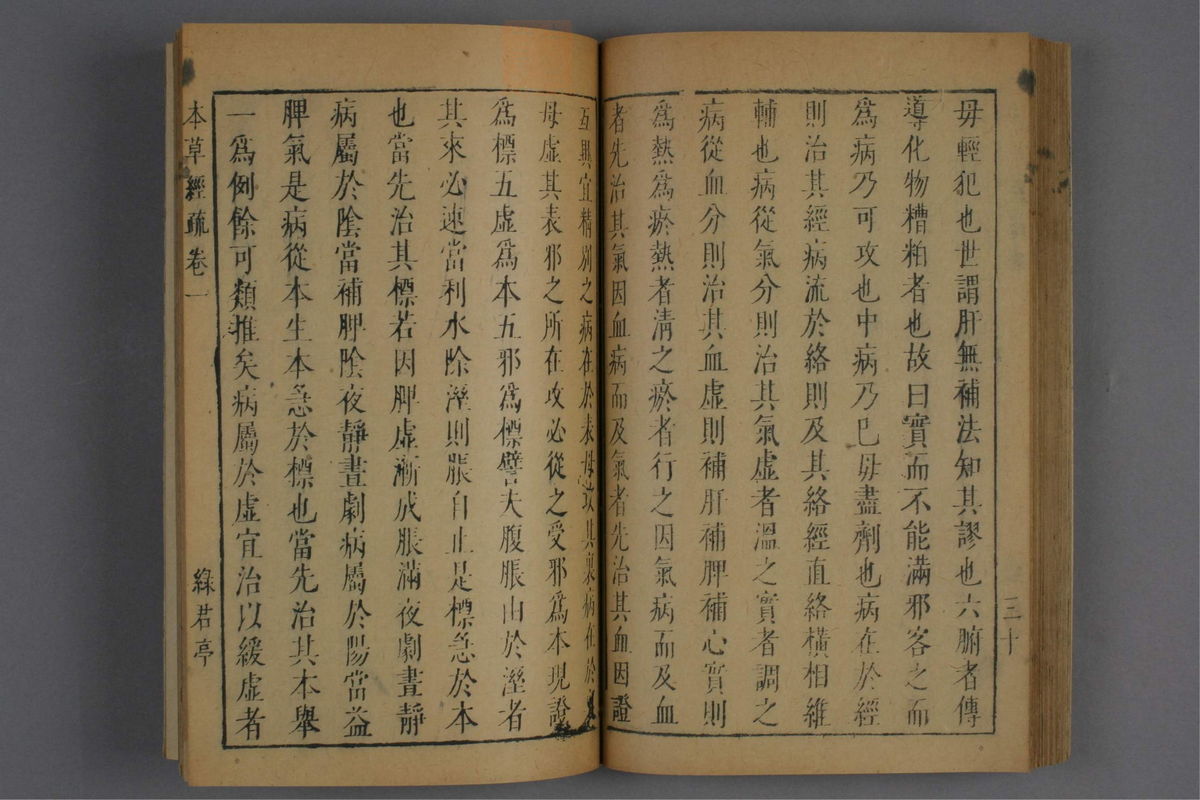 三十
毋輕犯也世謂肝無補法知其謬也六腑者傳
導化物糟粕者也故曰實而不能滿邪客之而
爲病乃可攻也中病乃已毋盡劑也病在於經
則治其經病流於絡則及其絡經直絡橫相維
輔也病從氣分則治其氣虛者溫之實者調之
病從血分則治其血虛則補肝補脾補心實則
爲熱爲瘀熱者清之瘀者行之因氣病而及血
者先治其氣因血病而及氣者先治其血因證
互異宜精別之病在於表毋攻其裏病在於
毋虛其表邪之所在攻必從之受邪爲本現證
爲標五虛爲本五邪爲標譬夫腹脹由於溼者
其來必速當利水除溼則脹自止是標急於本
也當先治其標若因脾虛漸成脹滿夜劇晝靜
病屬於陰當補脾陰夜靜晝劇病屬於陽當益
脾氣是病從本生本急於標也當先治其本舉
一爲例餘可類推矣病屬於虛宜治以緩虛者
本草經疏卷一
綠君亭